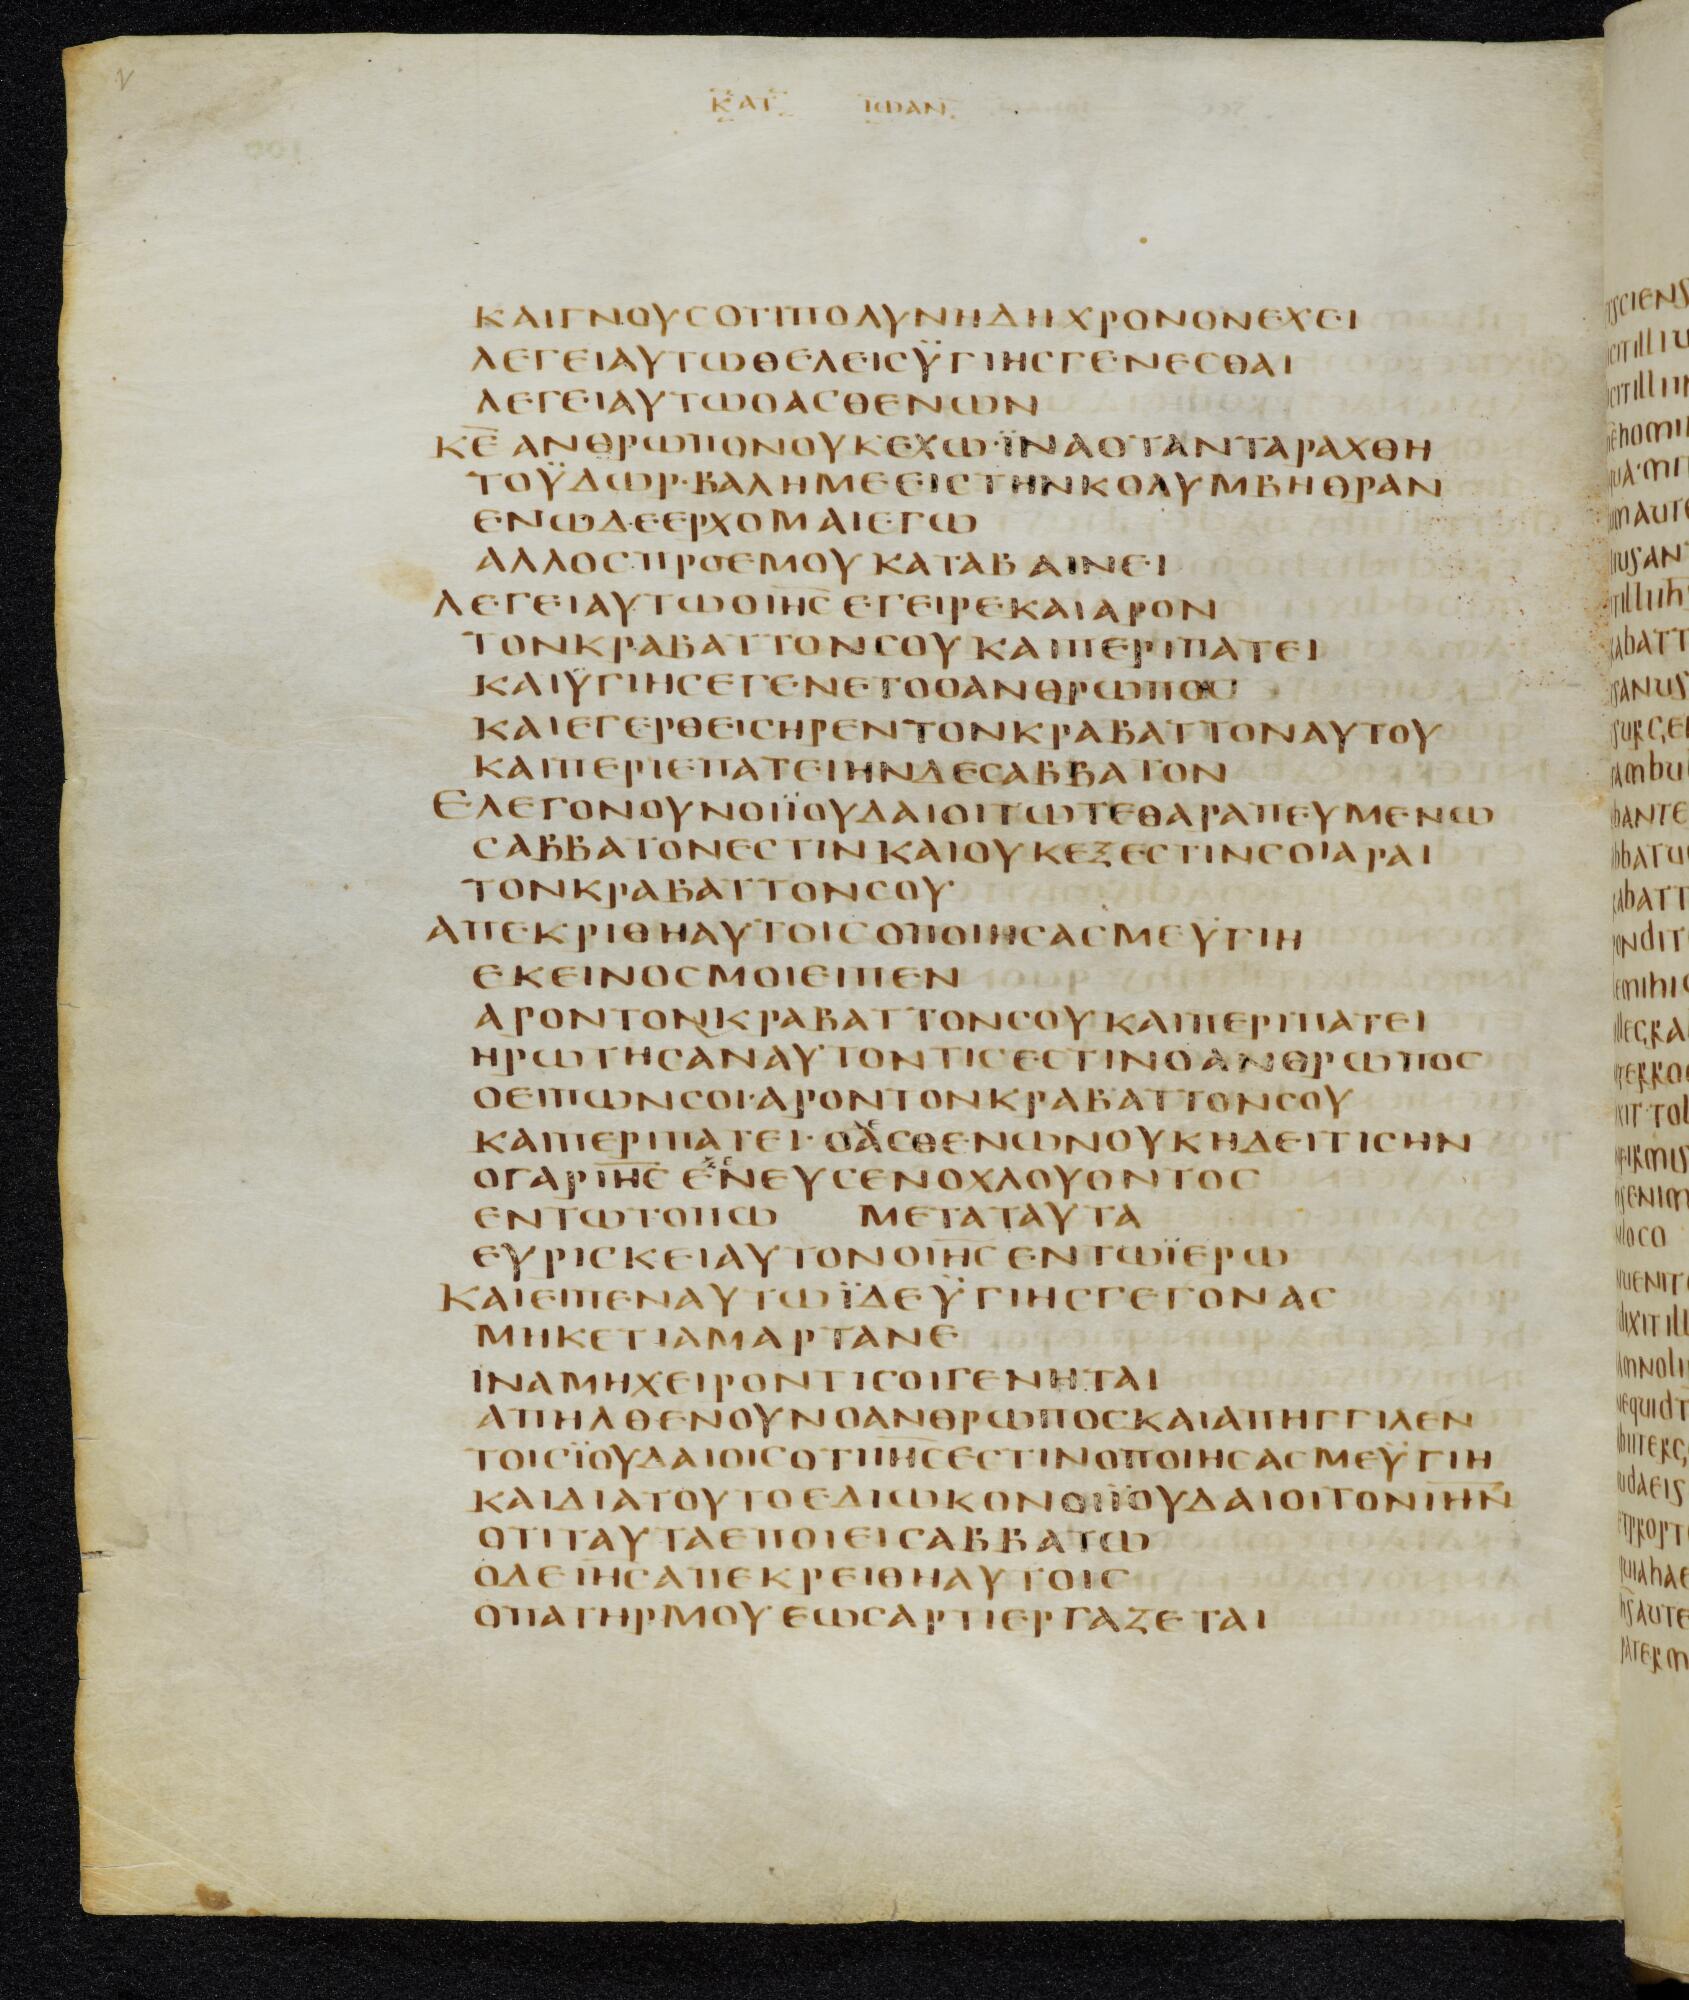 ΚΑΤ ΙΩΑΝ
ΚΑΙΓΝΟΥСΟΤΙΠΟΛΥΝΗΔΗΧΡΟΝΟΝΕΧΕΙ
ΛΕΓΕΙΑΥΤΩΘΕΛΕΙСΫΓΙΗСΓΕΝΕСΘΑΙ
ΛΕΓΕΙΑΥΤΩΟΑСΘΕΝΩΝ
Κ̅Ε̅ ΑΝΘΡΩΠΟΝΟΥΚΕΧΩ·ΪΝΑΟΤΑΝΤΑΡΑΧΘΗ
ΤΟΫΔΩΡ·ΒΑΛΗΜΕΕΙСΤΗΝΚΟΛΥΜΒΗΘΡΑΝ
ΕΝΩΔΕΕΡΧΟΜΑΙΕΓΩ
ΑΛΛΟСΠΡΟΕΜΟΥΚΑΤΑΒΑΙΝΕΙ
ΛΕΓΕΙΑΥΤΩΟΙ̅Η̅С̅ ΕΓΕΙΡΕΚΑΙΑΡΟΝ
ΤΟΝΚΡΑΒΑΤΤΟΝСΟΥΚΑΙΠΕΡΙΠΑΤΕΙ
ΚΑΙΫΓΙΗСΕΓΕΝΕΤΟΟΑΝΘΡΩΠΟС
ΚΑΙΕΓΕΡΘΕΙСΗΡΕΝΤΟΝΚΡΑΒΑΤΤΟΝΑΥΤΟΥ
ΚΑΙΠΕΡΙΕΠΑΤΕΙΗΝΔΕСΑΒΒΑΤΟΝ
ΕΛΕΓΟΝΟΥΝΟΙΪΟΥΔΑΙΟΙΤΩΤΕΘΑΡΑΠΕΥΜΕΝΩ
СΑΒΒΑΤΟΝΕСΤΙΝΚΑΙΟΥΚΕΞΕСΤΙΝСΟΙΑΡΑΙ
ΤΟΝΚΡΑΒΑΤΤΟΝСΟΥ·
ΑΠΕΚΡΙΘΗΑΥΤΟΙСΟΠΟΙΗСΑСΜΕΫΓΙΗ
ΕΚΕΙΝΟСΜΟΙΕΙΠΕΝ
ΑΡΟΝΤΟΝΚΡΑΒΑΤΤΟΝСΟΥΚΑΙΠΕΡΙΠΑΤΕΙ
ΗΡΩΤΗСΑΝΑΥΤΟΝΤΙСΕСΤΙΝΟΑΝΘΡΩΠΟС
ΟΕΙΠΩΝСΟΙ·ΑΡΟΝΤΟΝΚΡΑΒΑΤΤΟΝСΟΥ
ΚΑΙΠΕΡΙΠΑΤΕΙ·ΟΑСΘΕΝΩΝΟΥΚΗΔΕΙΤΙСΗΝ
ΟΓΑΡΙ̅Η̅С̅ ΕΝΕΥСΕΝΟΧΛΟΥΟΝΤΟС
ΕΝΤΩΤΟΠΩ ΜΕΤΑΤΑΥΤΑ
ΕΥΡΙСΚΕΙΑΥΤΟΝΟΙ̅Η̅С̅ ΕΝΤΩΪΕΡΩ
ΚΑΙΕΙΠΕΝΑΥΤΩΪΔΕΫΓΙΗСΓΕΓΟΝΑС
ΜΗΚΕΤΙΑΜΑΡΤΑΝΕ
ΙΝΑΜΗΧΕΙΡΟΝΤΙСΟΙΓΕΝΗΤΑΙ
ΑΠΗΛΘΕΝΟΥΝΟΑΝΘΡΩΠΟСΚΑΙΑΠΗΓΓΙΛΕΝ
ΤΟΙСΪΟΥΔΑΙΟΙСΟΤΙΙ̅Η̅С̅ΕСΤΙΝΟΠΟΙΗСΑСΜΕΫΓΙΗ
ΚΑΙΔΙΑΤΟΥΤΟΕΔΙΩΚΟΝΟΙΪΟΥΔΑΙΟΙΤΟΝΙ̅Η̅Ν̅
ΟΤΙΤΑΥΤΑΕΠΟΙΕΙСΑΒΒΑΤΩ
ΟΔΕΙ̅Η̅С̅ΑΠΕΚΡΕΙΘΗΑΥΤΟΙС
ΟΠΑΤΗΡΜΟΥΕΩСΑΡΤΙΕΡΓΑΖΕΤΑΙ